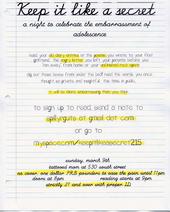 Keep it like a secret
a night to celebrate the embarrassment of
adolescence
read your old diary entries or the poems you wrote to your first
girlfriend. the angry letter you left your parents before you
ran away from home or your
dig out those boxes from under the bed! read the words you once
thought so private and insightful this time is public.
it will be more embarrassing than you think
to sign up to read, send a note to
spillyrguts at gmail dot com
or go to
myspace.com/keepitlikeasecret215
sunday, march 9th
tattooed mom at 530 south street
no cover. one dollar PBR pounders to ease the pain until 11pm
doors at 8pm reading starts at 9pm
strictly 21 and over with proper ID